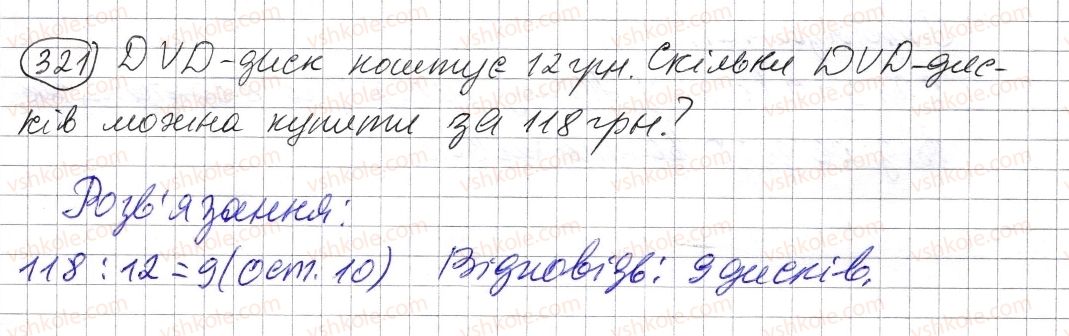 321) DVD-диск коштує 12 грн. Скільки DVD-дис-
ків можна купити за 118 грн.?
Розв'язання:
118 : 12 = 9 (ост. 10) Відповідь: 9 дисків.